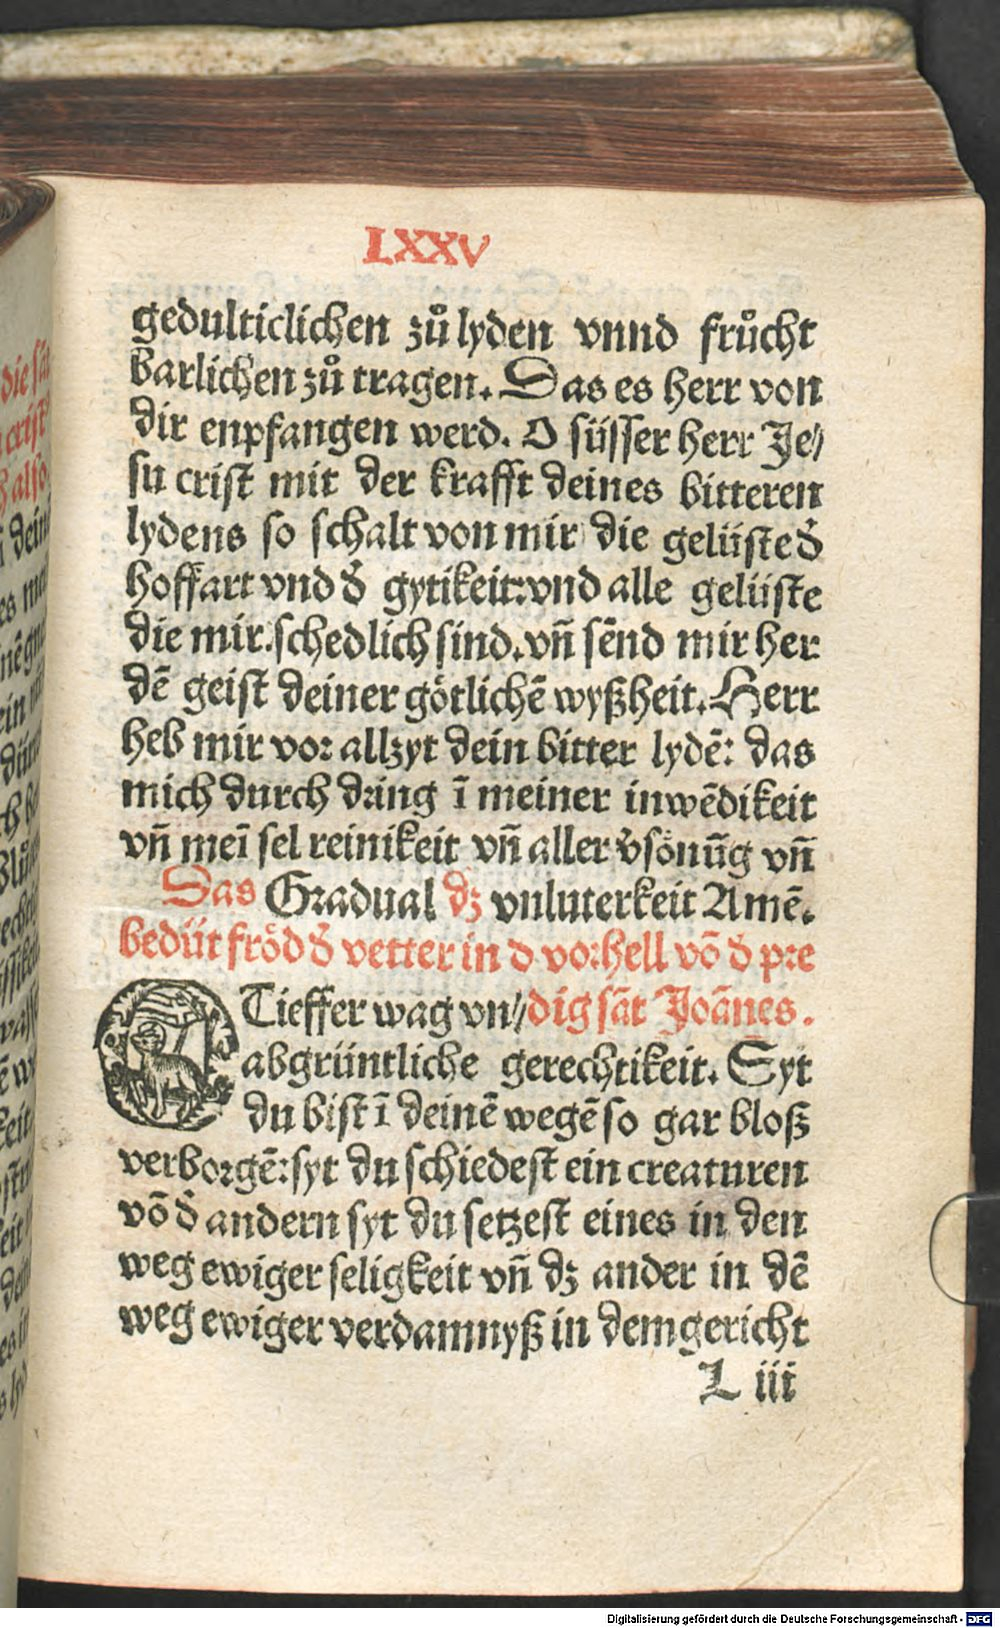 LXXV
gedulticlichen zů lyden vnnd frůcht
barlichen zů tragen. Das es herr von
dir enpfangen werd. O süsser herr Je⸗
su crist mit der krafft deines bitteren
lydens so schalt von mir die gelüste d̕
hoffart vnd d̕ gytikeit: vnd alle gelüste
die mir schedlich sind. vn̄ sēnd mir her
dē geist deiner götlichē wyßheit. Herr
heb mir vor allzyt dein bitter lydē: das
mich durch dring ī meiner inwēdikeit
vn̄ meī sel reinikeit vn̄ aller v̕sönūg vn̄
Das Gradual dz vnluterkeit Amē.
bedüt frőd d̕ vetter in d vorhell vō d̕ pre
O Tieffer wag vn⸗ dig sāt Joānes.
abgrüntliche gerechtikeit. Syt
du bist ī deinē wegē so gar bloß
verborgē: syt du schiedest ein creaturen
vō d̕ andern syt du setzest eines in den
weg ewiger seligkeit vn̄ dz ander in dē
weg ewiger verdamnyß in dem gericht
L iii
die sā
crist
alſo
dein
Digitalisierung gefördert durch die Deutsche Forschungsgemeinschaft - DFG